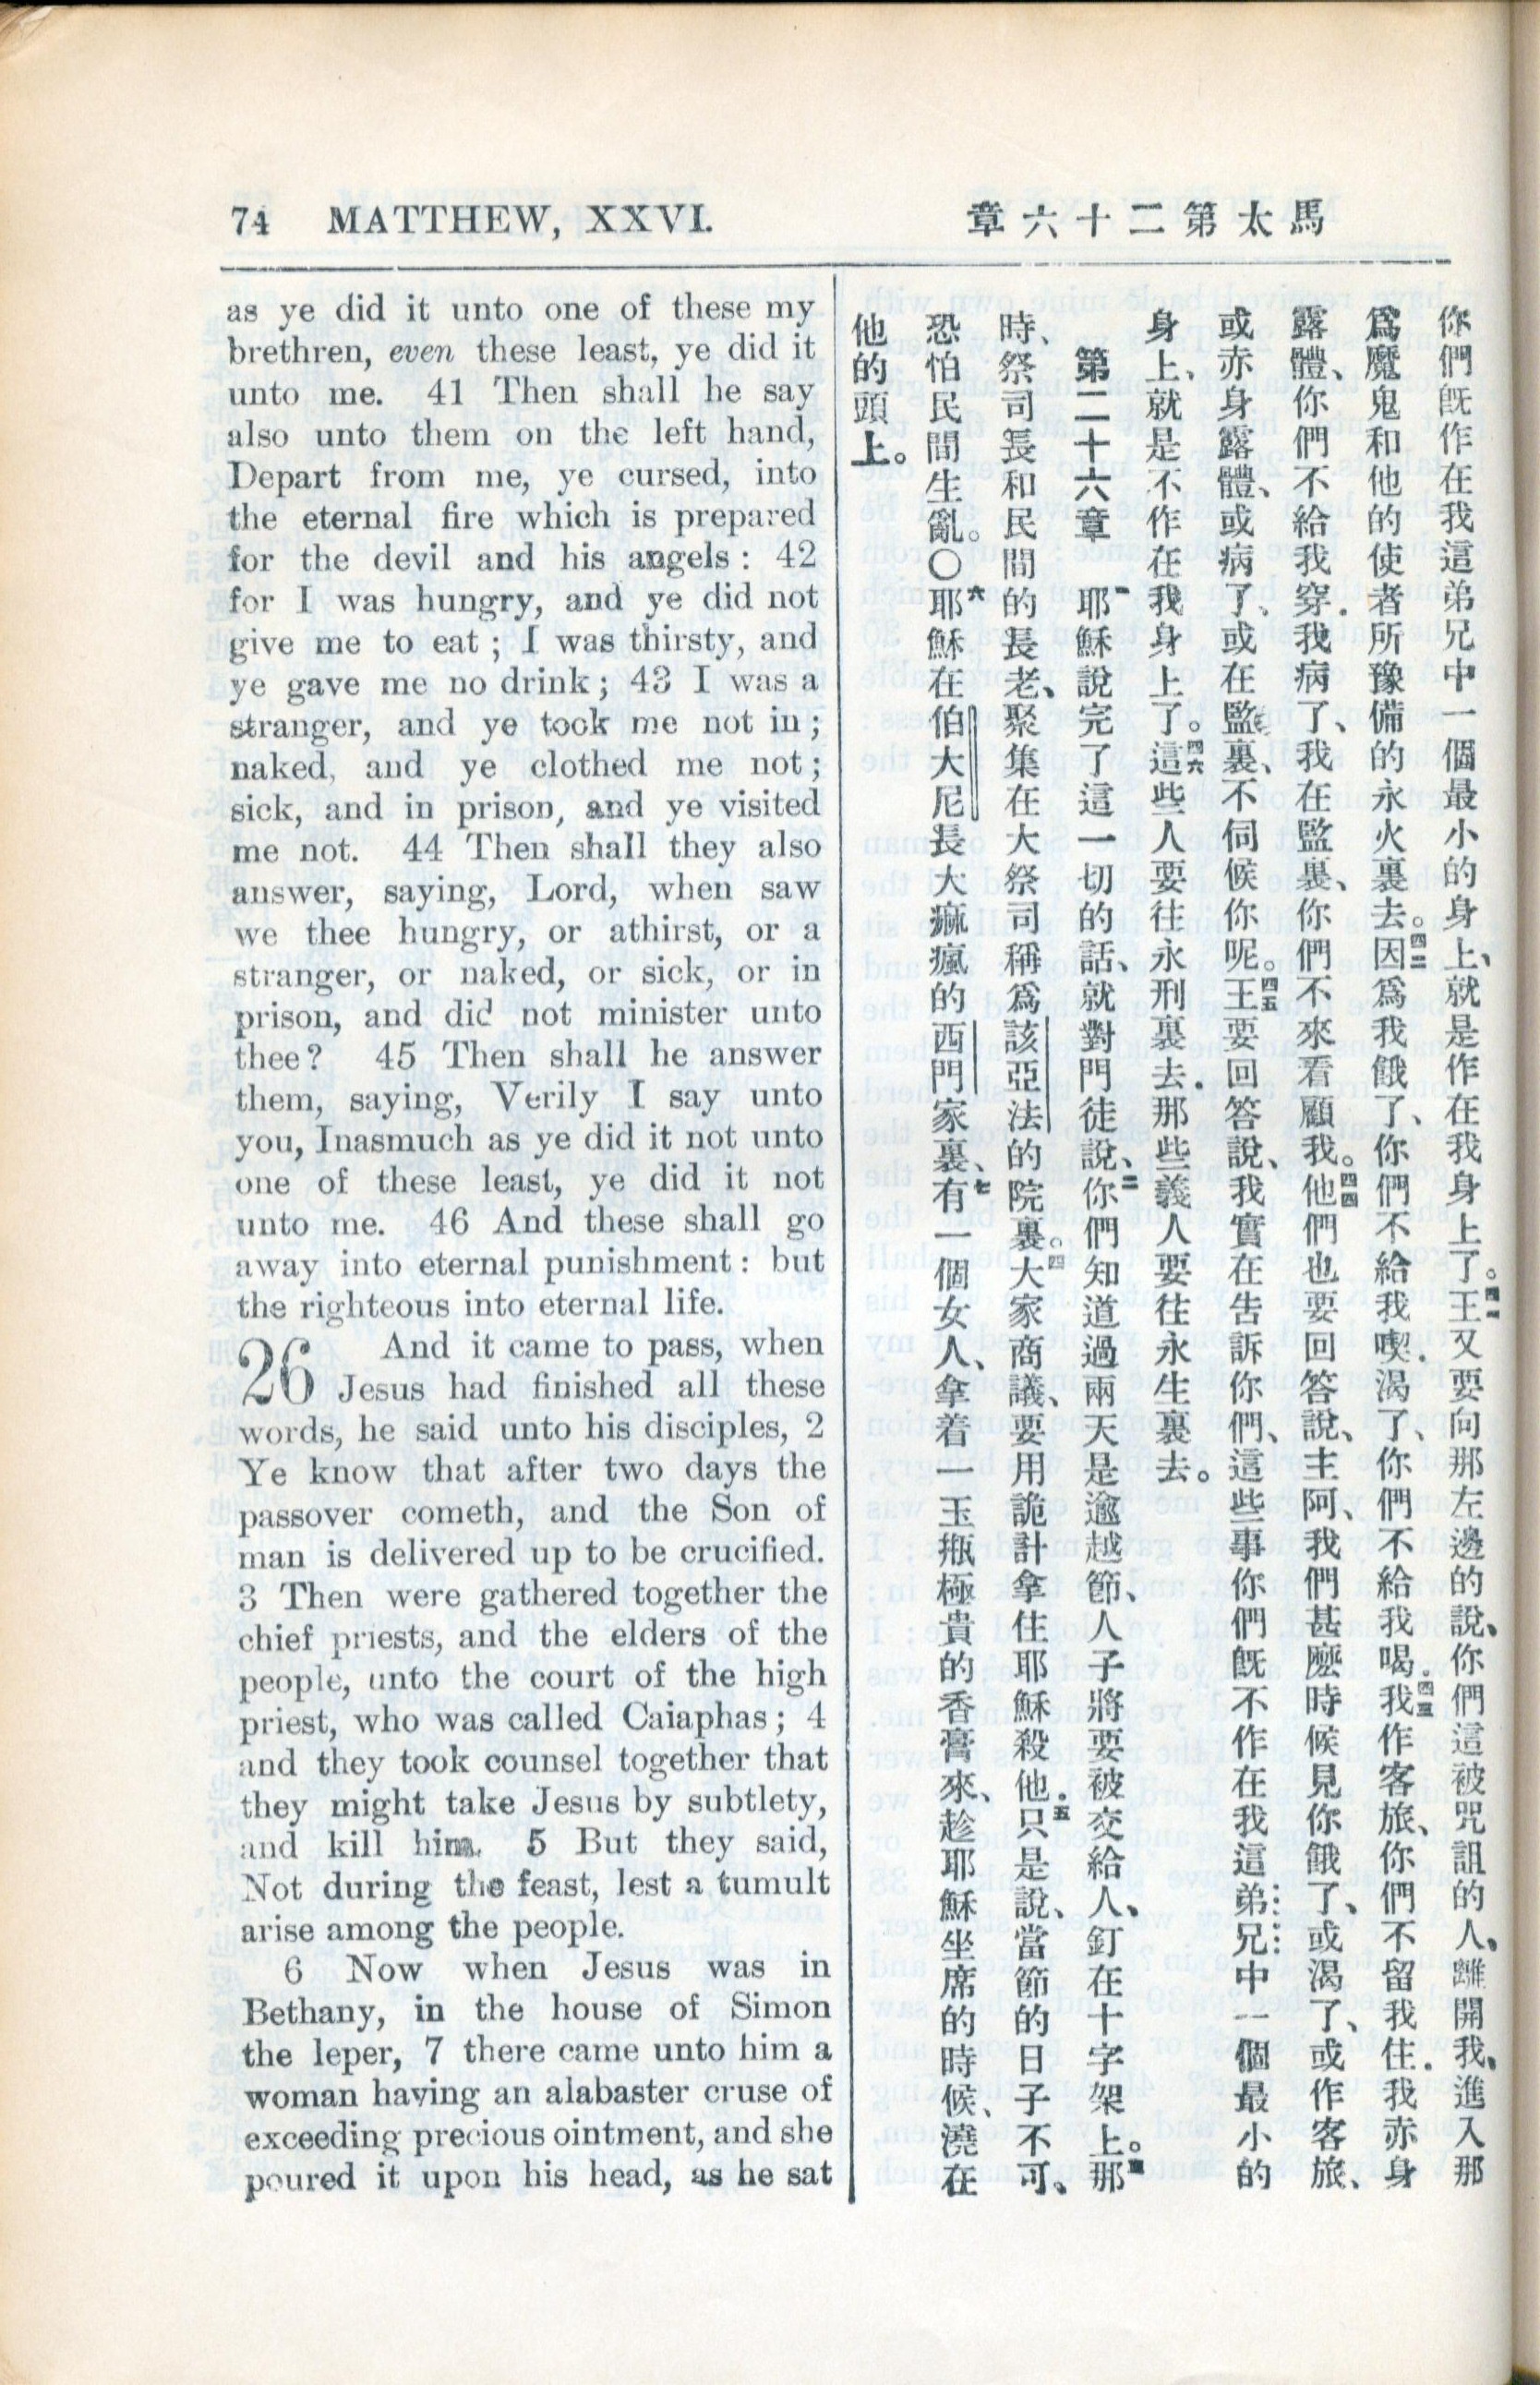 74 MATTHEW, XXVI.
章六十二第太馬
as ye did it unto one of these my
brethren, even these least, ye did it
unto me. 41 Then shall he say
also unto them on the left hand,
Depart from me, ye cursed, into
the eternal fire which is prepared
for the devil and his angels : 42
for I was hungry, and ye did not
give me to eat ; I was thirsty, and
ye gave me no drink ; 43 I was a
stranger, and ye took me not in ;
naked, and ye clothed me not ;
sick, and in prison, and ye visited
me not. 44 Then shall they also
answer, saying, Lord, when saw
we thee hungry, or athirst, or a
stranger, or naked, or sick, or in
prison, and did not minister unto
thee? 45 Then shall he answer
them, saying, Verily I say unto
you, Inasmuch as ye did it not unto
one of these least, ye did it not
unto me. 46 And these shall go
away into eternal punishment : but
the righteous into eternal life.
26 And it came to pass, when
Jesus had finished all these
words, he said unto his disciples, 2
Ye know that after two days the
passover cometh, and the Son of
man is delivered up to be crucified.
3 Then were gathered together the
chief priests, and the elders of the
people, unto the court of the high
priest, who was called Caiaphas ; 4
and they took counsel together that
they might take Jesus by subtlety,
and kill him. 5 But they said,
Not during the feast, lest a tumult
arise among the people.
6 Now when Jesus was in
Bethany, in the house of Simon
the leper, 7 there came unto him a
woman having an alabaster cruse of
exceeding precious ointment, and she
poured it upon his head, as he sat
你們旣作在我這弟兄中一個最小的身上、就是作在我身上了。四一王又要向那左邊的說、你們這被咒詛的人、離開我、進入那
爲魔鬼和他的使者所豫備的永火裏去。四二因爲我餓了、你們不給我喫．渴了、你們不給我喝．四三我作客旅、你們不留我住．我赤身
露體、你們不給我穿．我病了、我在監裏、你們不來看顧我。四四他們也要回答說、主阿、我們甚麼時候見你餓了、或渴了、或作客旅、
或赤身露體、或病了、或在監裏、不伺候你呢。四五王要回答說、我實在告訴你們、這些事你們旣不作在我這弟兄中一個最小的
身上、就是不作在我身上了。四六這些人要往永刑裏去．那些義人要往永生裏去。
第二十六章 一耶穌說完了這一切的話、就對門徒說、二你們知道過兩天是逾越節、人子將要被交給人、釘在十字架上。三那
時、祭司長和民間的長老、聚集在大祭司稱爲該亞法的院裏。四大家商議、要用詭計拿住耶穌殺他．五只是說、當節的日子不可、
恐怕民間生亂。〇六耶穌在伯大尼長大痲瘋的西門家裏、七有一個女人、拿着一玉甁極貴的香膏來、趁耶穌坐席的時候、澆在
他的頭上。